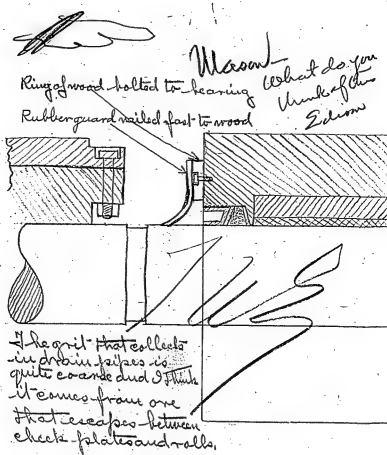 Mason
What do you
think of this
Edison
Ring of wood bolted to bearing
Rubber guard nailed fast to wood
The grit that collects
in drain pipes is
quite coarse and I think
it comes from ore
that escapes between
cheek plates and rolls.